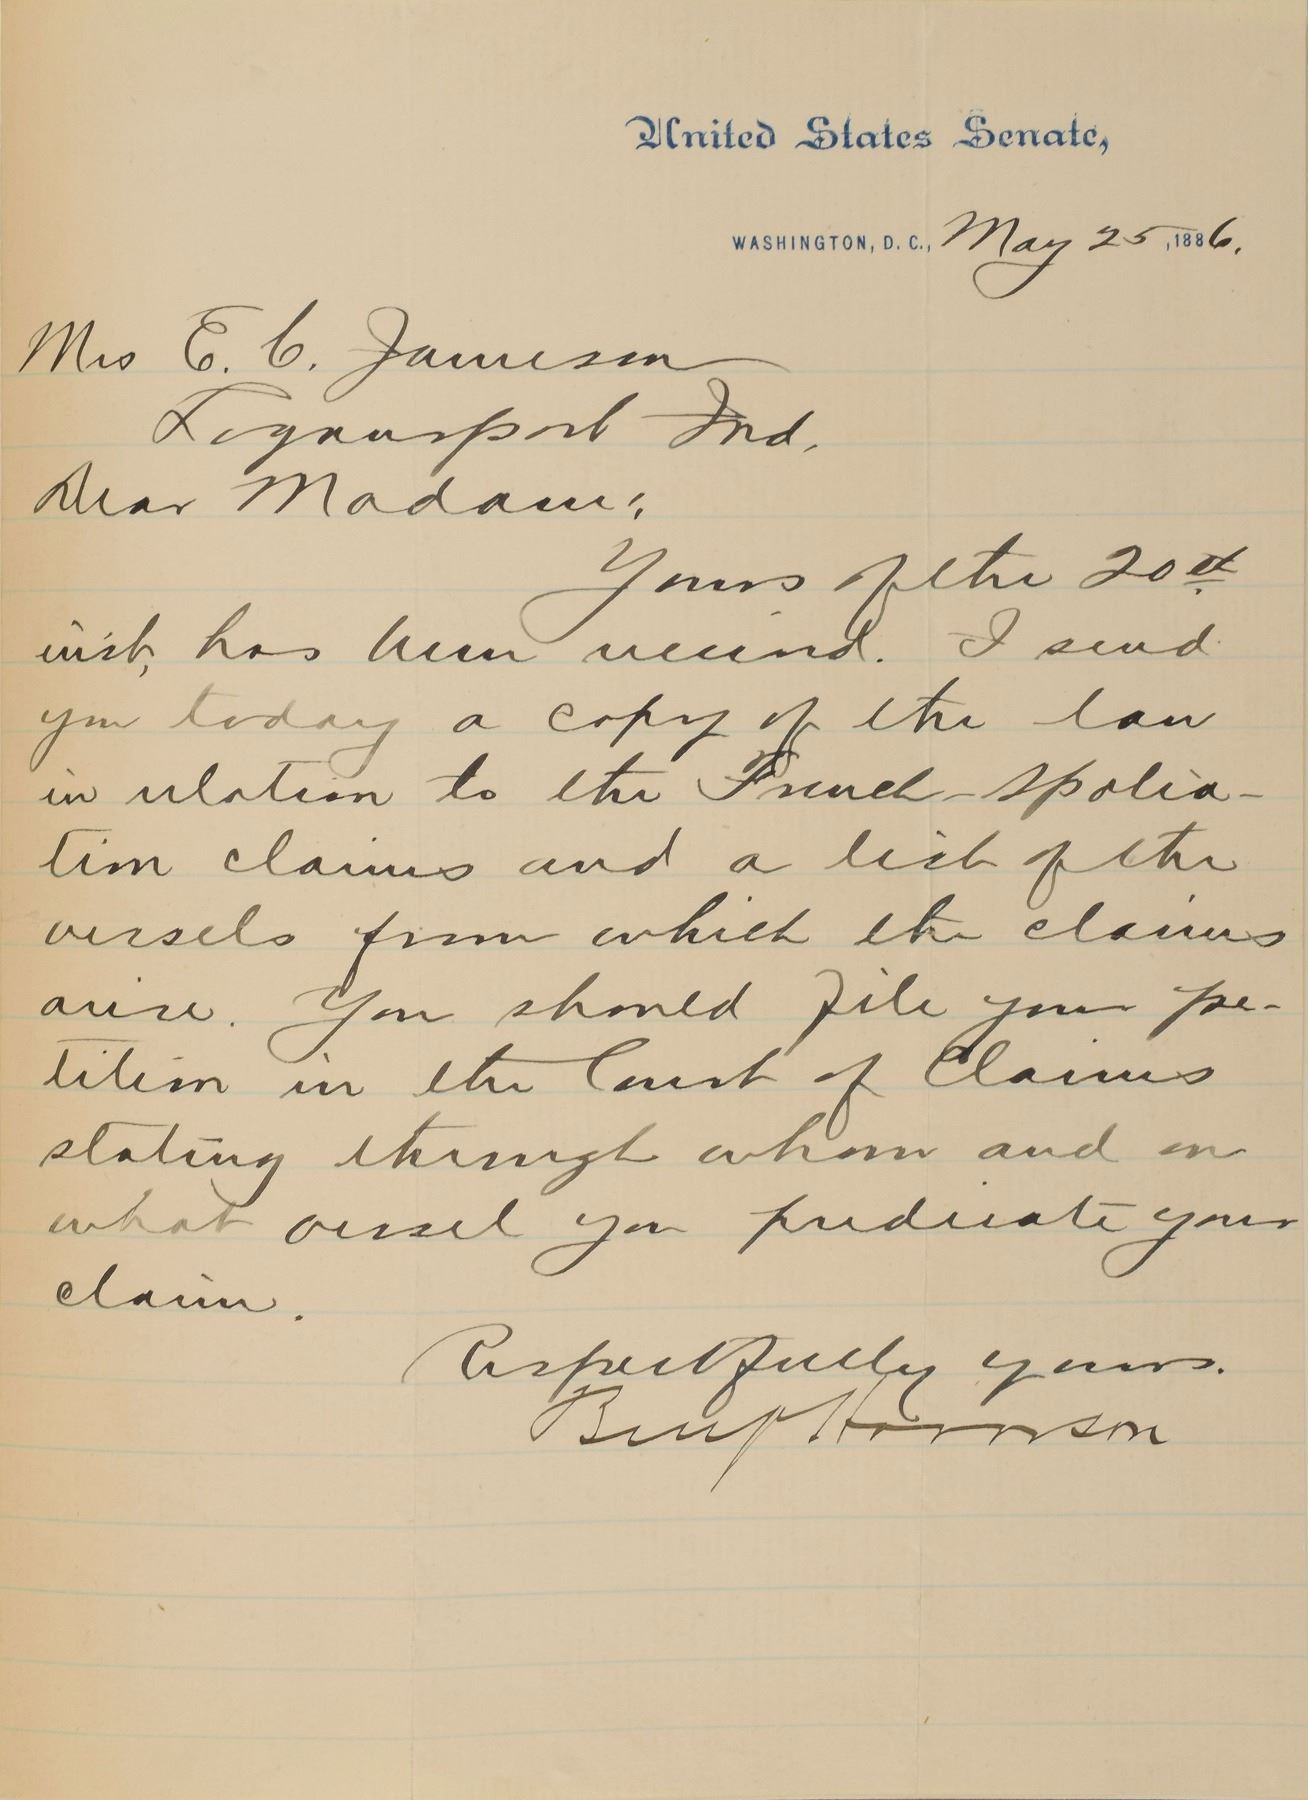 United States Senate,
WASHINGTON, D. C., May 25, 1886.
Mrs E. C. Jameson
Logansport Ind.
Dear Madam:
Yours of the 20th
inst, has been received. I send
you today a copy of the law
in relation to the French-spolia-
tion claims and a list of the
vessels from which the claims
arise. You should file your pe-
tition in the Court of Claims
stating through whom and on
what vessel you predicate your
claim.
Respectfully yours.
Benj Harrison